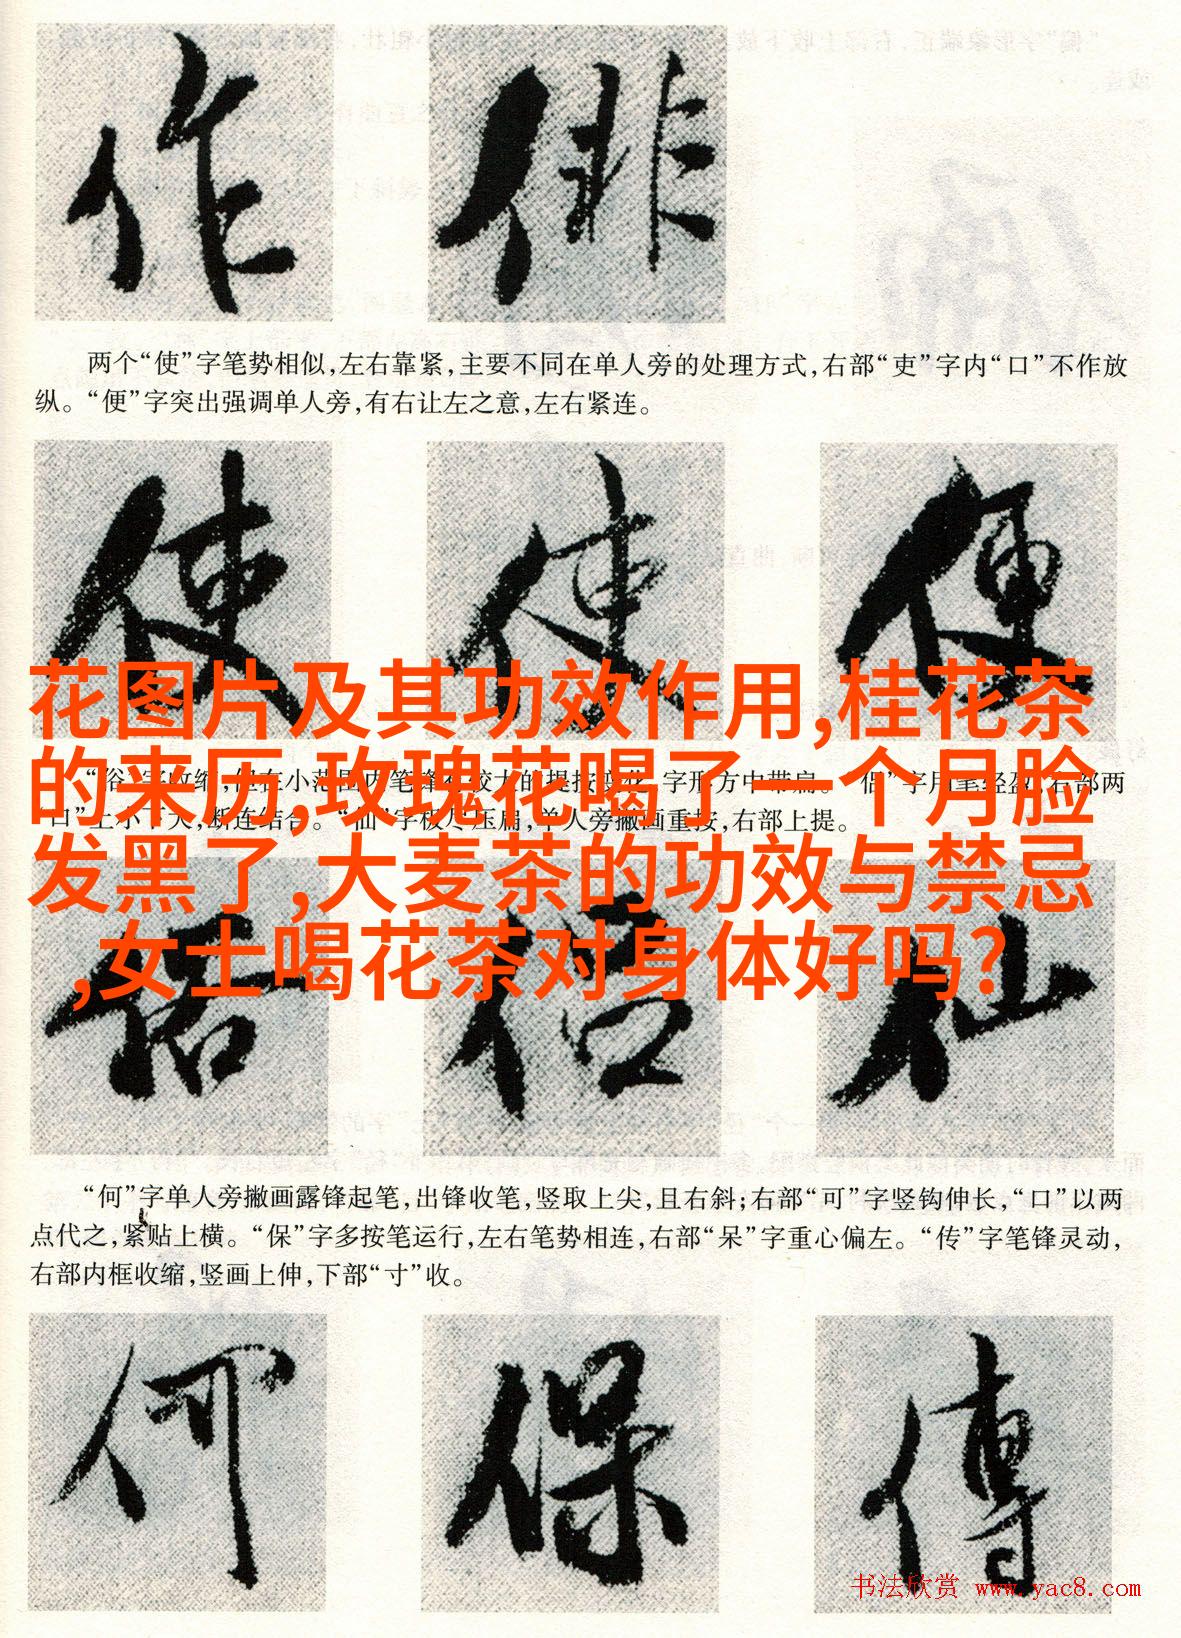 作 俳
两个“使”字笔势相似,左右靠紧,主要不同在单人旁的处理方式,右部“吏”字内“口”不作放
纵。“便”字突出强调单人旁,有右让左之意,左右紧连。
使 使 便
花图片及其功效作用,桂花茶
的来历,玫瑰花喝了一个月脸
发黑了,大麦茶的功效与禁忌
,女士喝花茶对身体好吗?
“俗”字收缩,但在小范围内笔锋有较大的提按变化,字形方中带扁。“侣”字用笔轻盈,右部两
“口”上小下大,断连结合。“仙”字极尽压扁,单人旁撇画重按,右部上提。
俗 侣 仙
“何”字单人旁撇画露锋起笔,出锋收笔,竖取上尖,且右斜;右部“可”字竖钩伸长,“口”以两
点代之,紧贴上横。“保”字多按笔运行,左右笔势相连,右部“呆”字重心偏左。“传”字笔锋灵动,
右部内框收缩,竖画上伸,下部“寸”收。
何 保 傳
书法欣赏 www.yac8.com